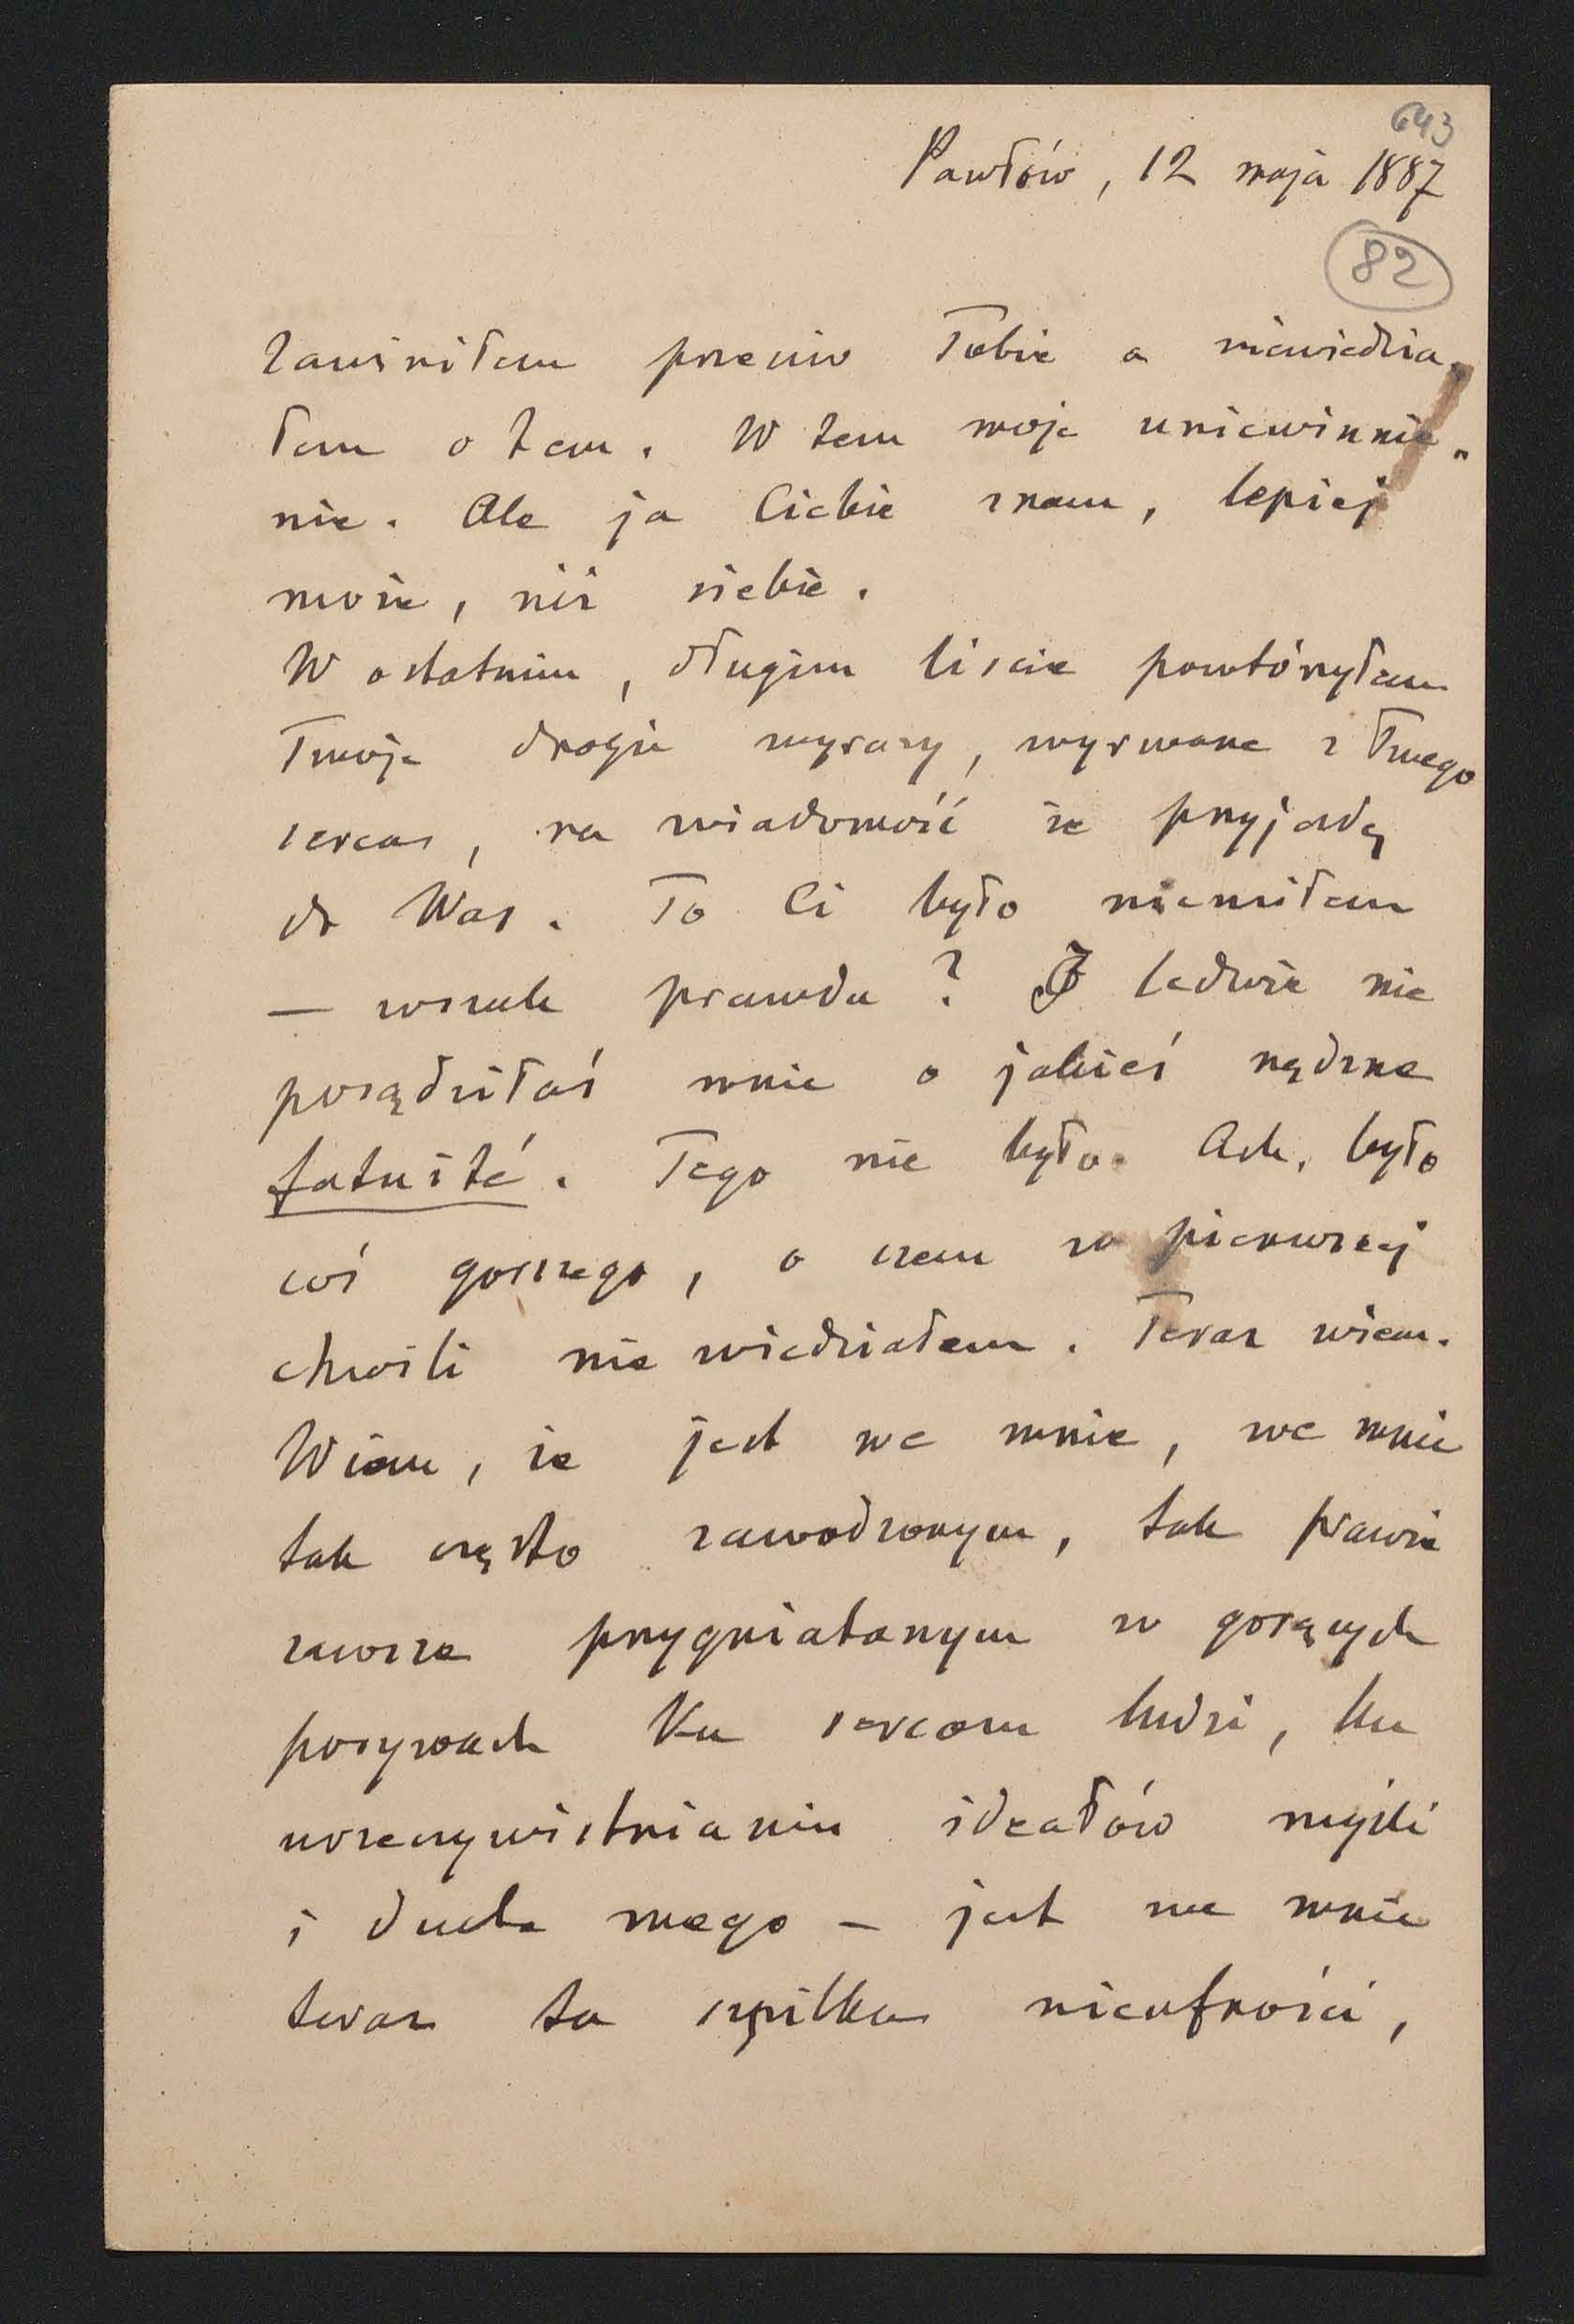 643
Pawłów, 12 maja 1887
82
Zawiniłem przeciw Tobie a niewiedzia-
łem o tem. W tem moje uniewinnie-
nie. Ale ja Ciebie znam, lepiej
może, niż siebie.
W ostatnim, długim liście powtórzyłem
Twoje drogie wyrazy, wyrwane z Twego
serca, na wiadomość że przyjadę
do Was. To Ci było niemiłem
— wszak prawda? I ledwie nie
posądziłaś mnie o jakieś nędzne
fatuité. Tego nie było. Ach, było
coś gorszego, o czem w pierwszej
chwili nie wiedziałem. Teraz wiem.
Wiem, że jest we mnie, we mnie
tak często zawodzonym, tak prawie
zawsze przygniatanym w gorących
porywach ku sercom ludzi, ku
urzeczywistnianiu ideałów myśli
i ducha mego — jest we mnie
teraz ta szpilka nieufności,